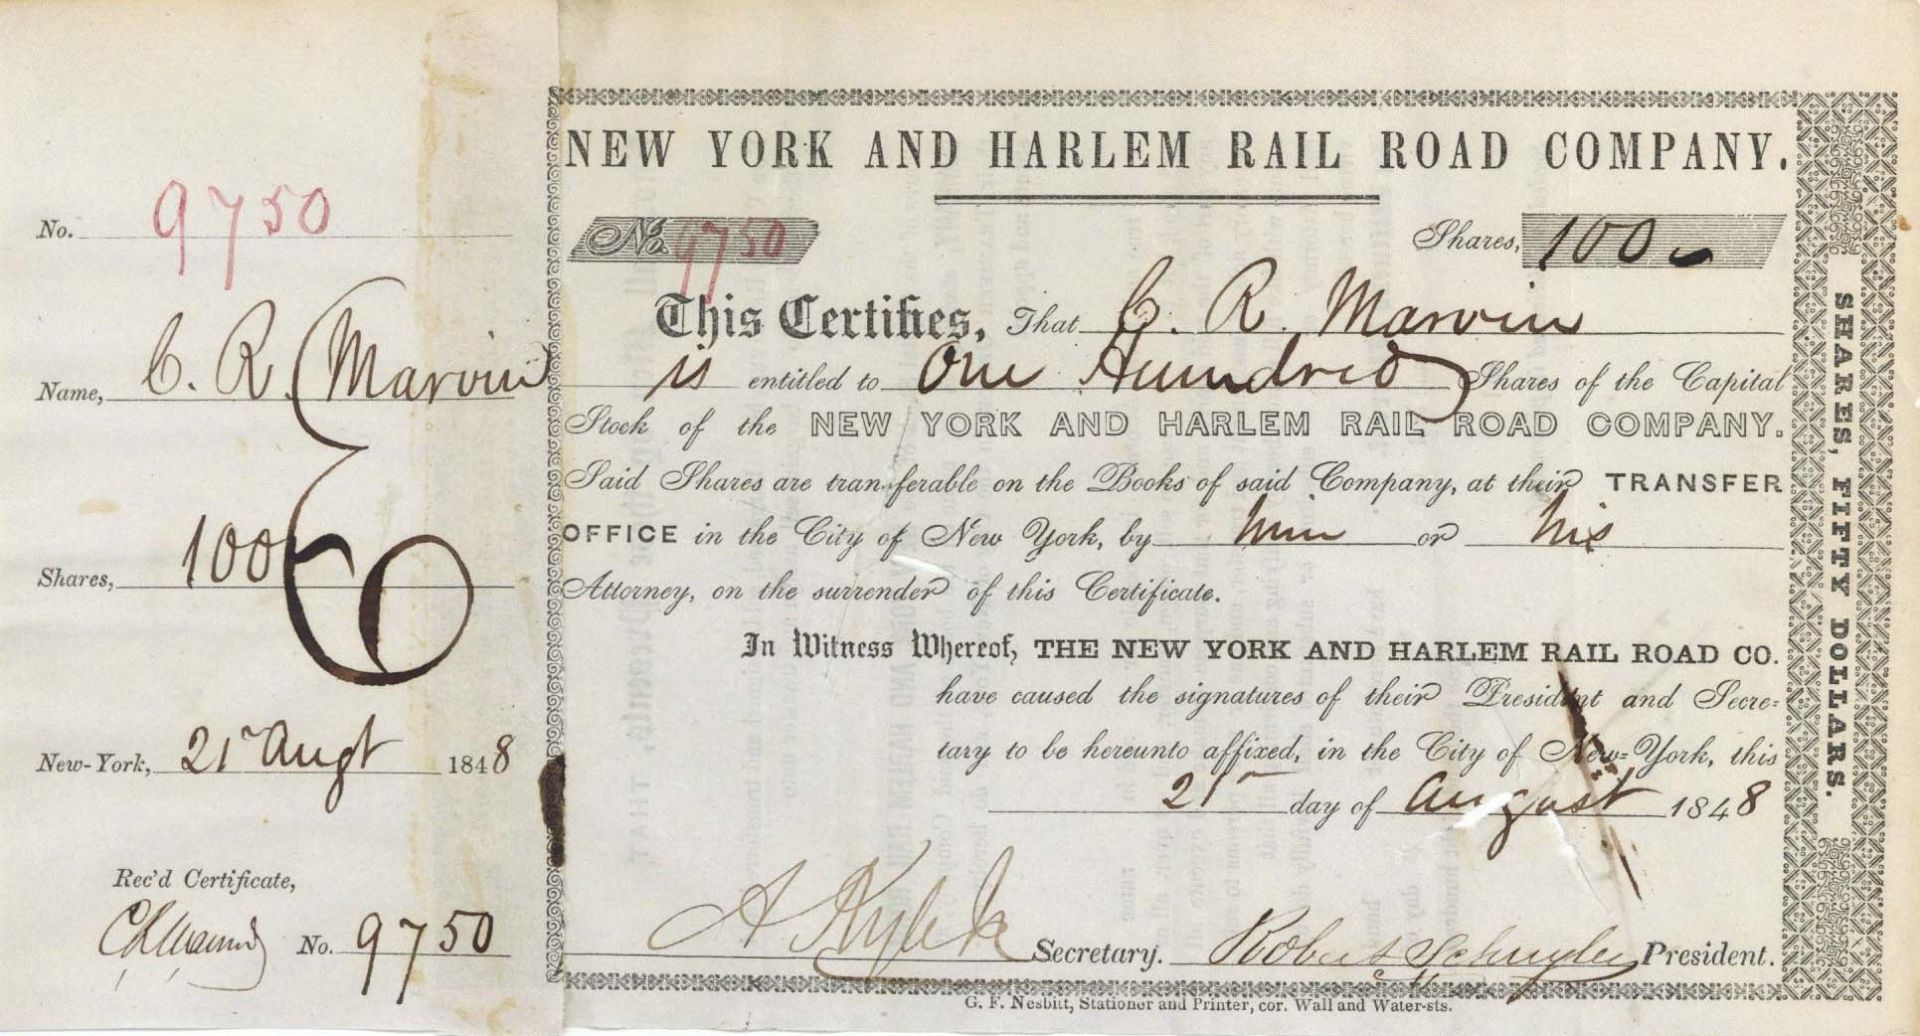 No. 9750
Name, C. R. Marvin
Shares, 100
New-York, 21st Augt 1848
Rec'd Certificate,
C R Marvin No. 9750
NEW YORK AND HARLEM RAIL ROAD COMPANY.
No. 9750 Shares, 100
This Certifies, That C. R. Marvin
is entitled to One Hundred Shares of the Capital
Stock of the NEW YORK AND HARLEM RAIL ROAD COMPANY.
Said Shares are transferable on the Books of said Company, at their TRANSFER
OFFICE in the City of New York, by him or his
Attorney, on the surrender of this Certificate.
In Witness Whereof, THE NEW YORK AND HARLEM RAIL ROAD CO.
have caused the signatures of their President and Secre=
tary to be hereunto affixed, in the City of New=York, this
21st day of August 1848
Secretary. Robert Schuyler President.
G. F. Nesbitt, Stationer and Printer, cor. Wall and Water-sts.
SHARES, FIFTY DOLLARS.